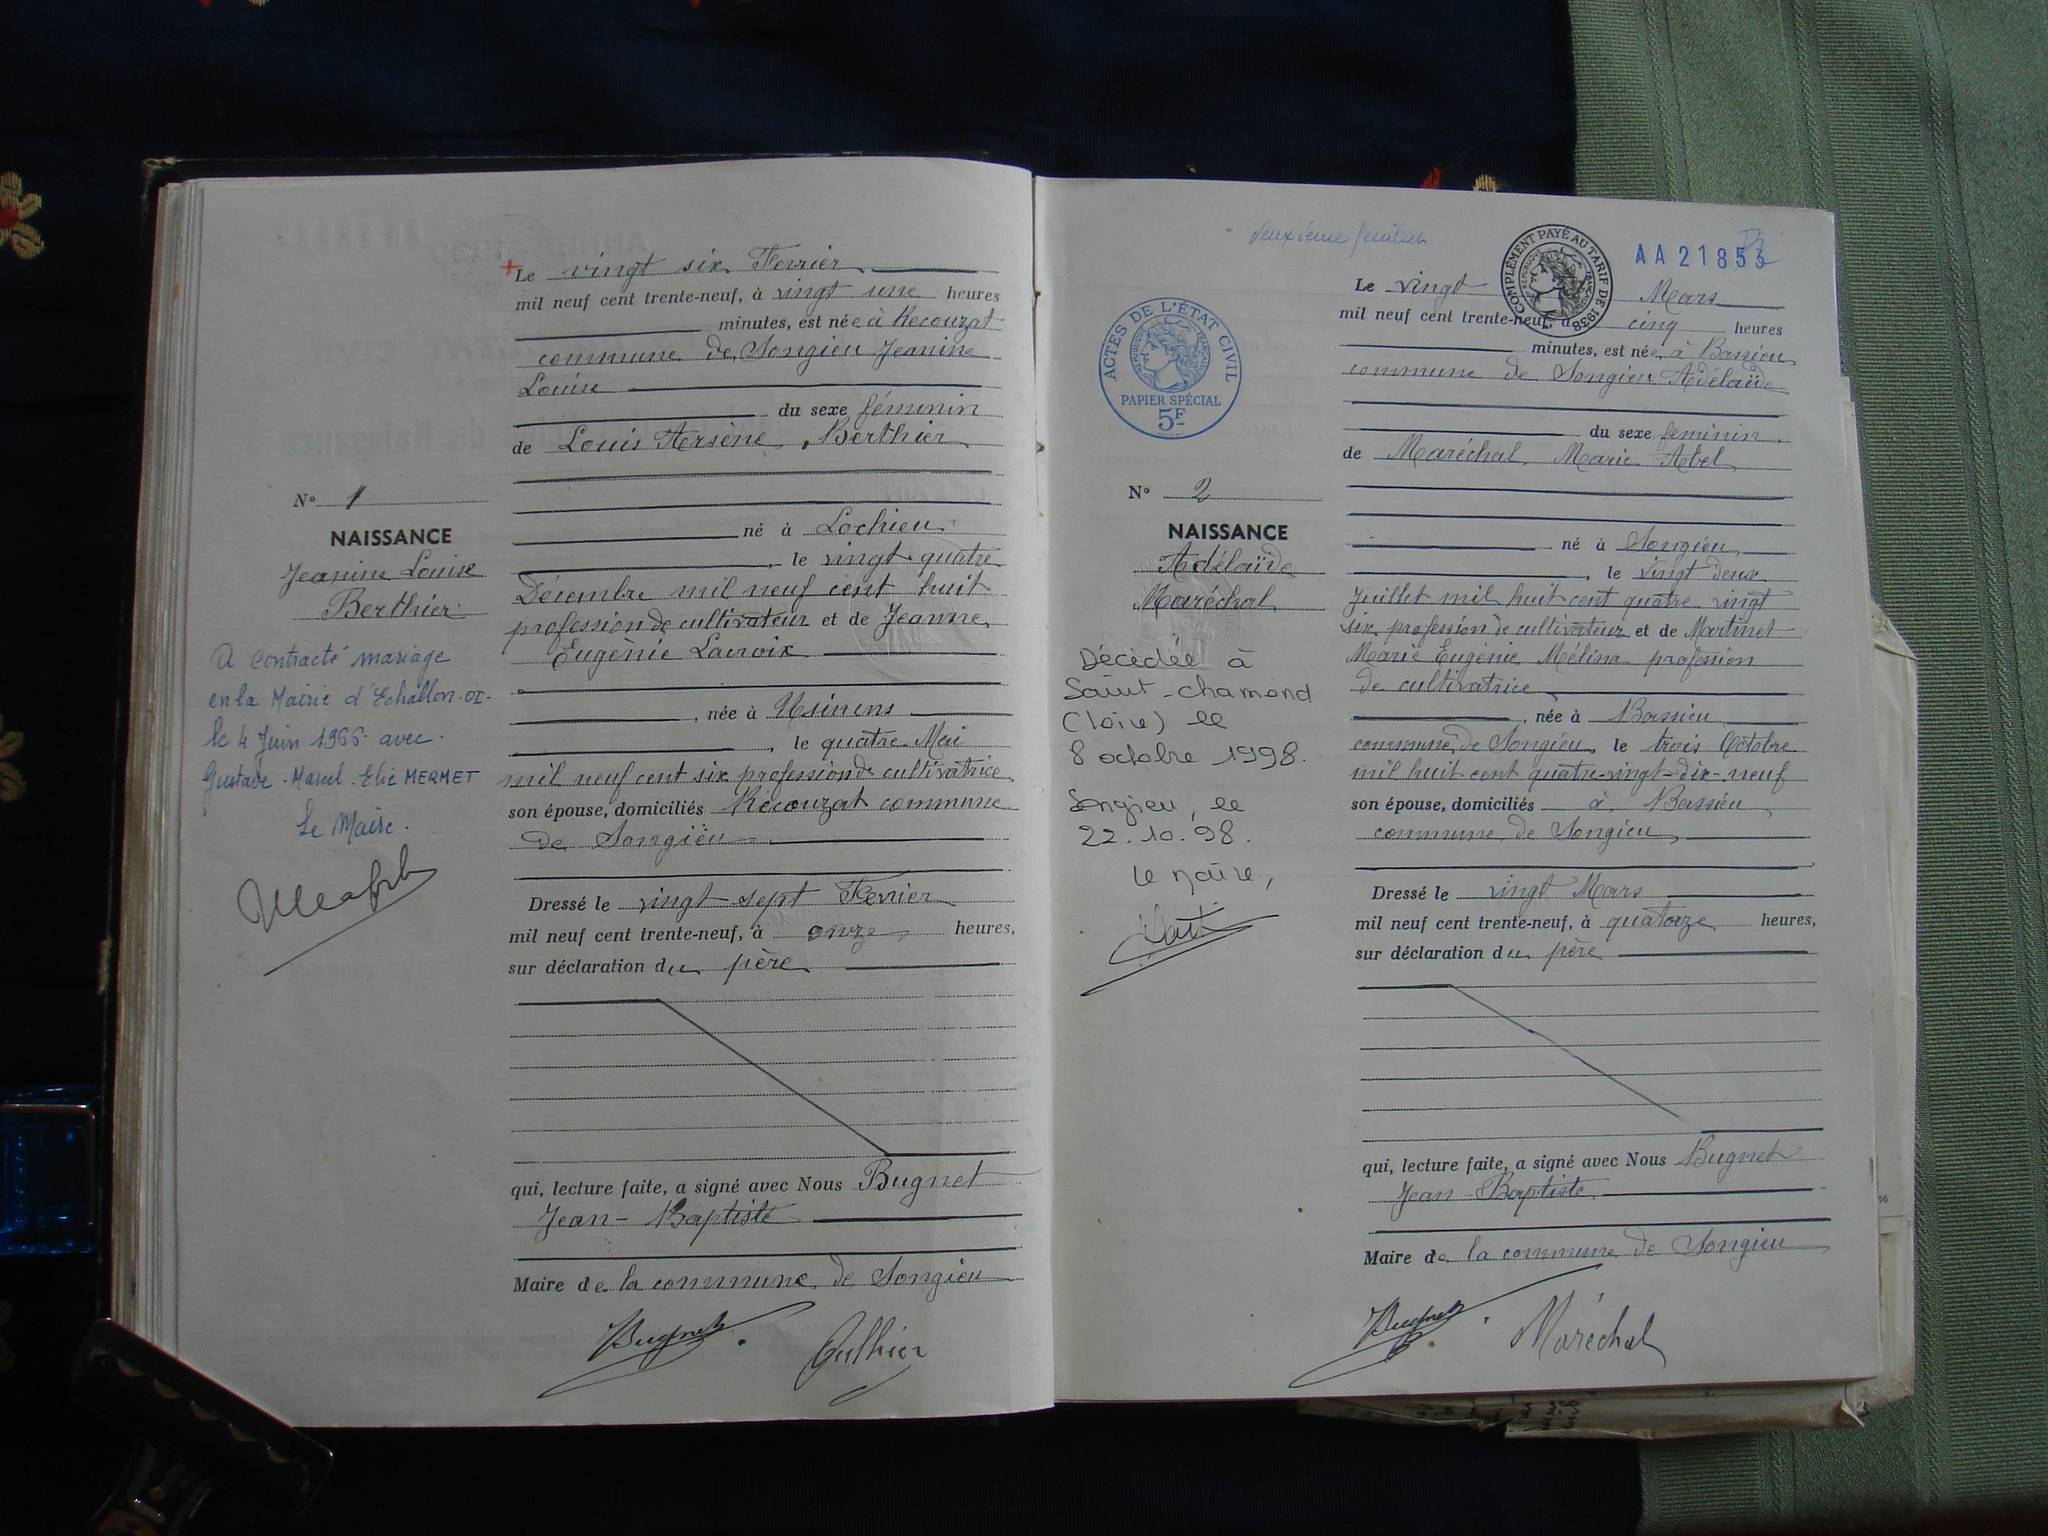 Le vingt six Fevrier
mil neuf cent trente-neuf, à vingt une heures
minutes, est née à Recouzat
commune de Songieu Jeanine
Louise
du sexe féminin
de Louis Arsène Berthier
né à Lochieu
, le vingt quatre
Décembre mil neuf cent huit
profession de cultivateur et de Jeanne
Eugènie Lacroix
, née à Usinens
, le quatre Mai
mil neuf cent six profession de cultivatrice
son épouse, domiciliés Récouzat commune
de Songieu
Dressé le vingt sept Fevrier
mil neuf cent trente-neuf, à onze heures,
sur déclaration du père
qui, lecture faite, a signé avec Nous Bugnet
Jean-Baptiste
Maire de la commune de Songieu
Bugnet
Berthier
N° 1
NAISSANCE
Jeanine Louise
Berthier
A contracté mariage
en la Mairie d'Echallon
le 4 Juin 1966 avec
Gustave Marcel Elie MERMET
Le Maire.
deuxième feuillet
COMPLEMENT PAYÉ AU TARIF DE 1938
AA 21853
ACTES DE L'ÉTAT CIVIL
PAPIER SPÉCIAL
5F
Le vingt Mars
mil neuf cent trente-neuf, à cinq heures
minutes, est née à Bassieu
commune de Songieu Adélaïde
du sexe feminin
de Maréchal Marie Abel
né à Songieu
, le vingt deux
Juillet mil huit cent quatre vingt
six profession de cultivateur et de Martinet
Marie Eugènie Mélina profession
de cultivatrice
, née à Bassieu
commune de Songieu, le trois Octobre
mil huit cent quatre-vingt-dix-neuf
son épouse, domiciliés à Bassieu
commune de Songieu
Dressé le vingt Mars
mil neuf cent trente-neuf, à quatorze heures,
sur déclaration du père
qui, lecture faite, a signé avec Nous Bugnet
Jean-Baptiste
Maire de la commune de Songieu
Bugnet
Maréchal
N° 2
NAISSANCE
Adélaïde
Maréchal
Décédée à
Saint-Chamond
(Loire) le
8 octobre 1998.
Songieu, le
22.10.98.
Le Maire,